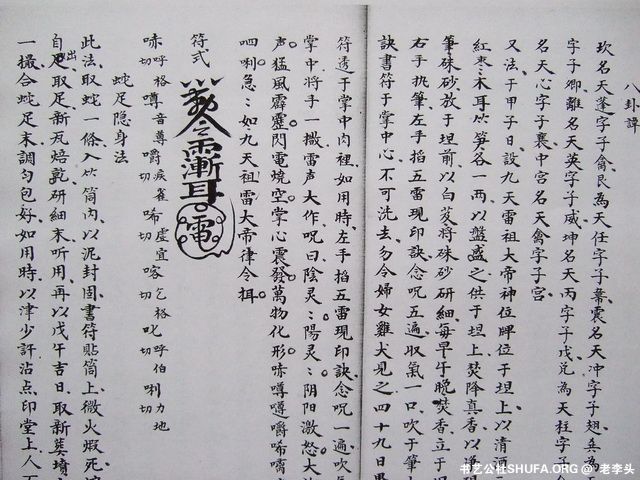 八卦諱
坎名天蓬字子禽艮為天任字子
震名天冲字子翹巽為
字子卿離名天英字子威坤名天丙字子戊兌為天柱字子
名天心字子襄中宮名天禽字子宮
又法于甲子日設九天雷祖大帝神位牌位于坦上以清酒
紅枣木耳竹笋各一两以盤盛之供于坦上焚降真香以
筆硃砂放于坦前以白芨將硃砂研細每早午晚焚香立于
右手执筆左手掐五雷現印訣念呪五遍取氣一口吹于筆
訣書符于掌中心不可洗去勿令婦女雞犬見之四十九日
符透于掌中肉裡如用時左手掐五雷現印訣念呪一遍吹
掌中将手一撒雷声大作呪曰陰灵陽灵阴阳激怒大
声猛風霹靂閃電燒空掌心震發萬物化形
唎急如九天祖雷大帝律令揖
符式
呼格切
噂音尊
嚼疾雀切
唏虚宜切
喀乞格切
叱
呼伯切
唎力地切
蛇足隐身法
此法取蛇一條入竹筒內以泥封固書符貼筒上微火煆死
自出足取足新瓦焙乾研細末听用再以戊午吉日取新葬墳
一撮合蛇足末調匀包好如用時以津少許沾点印堂上人
书艺公社SHUFA.ORG @ 老李头